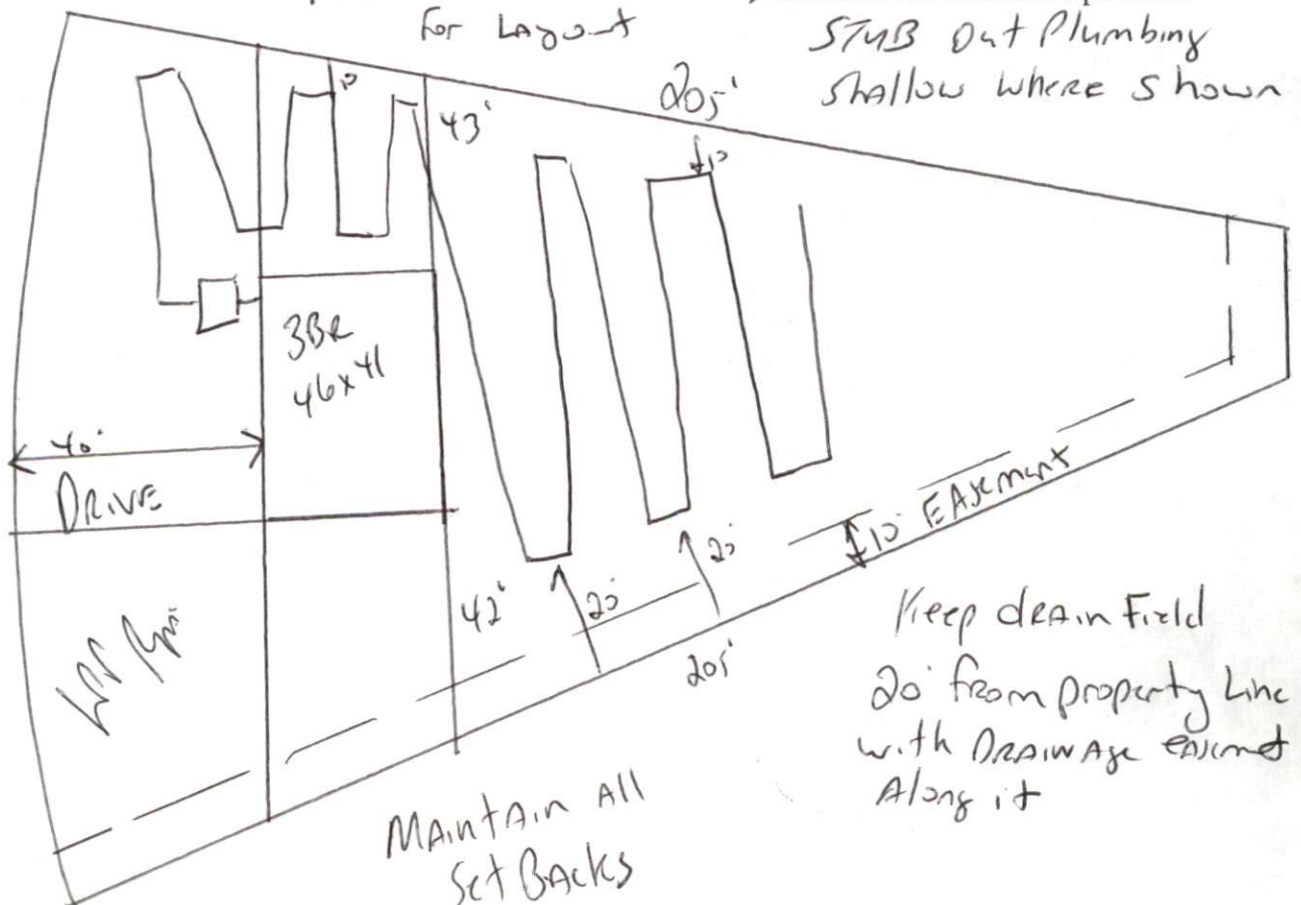 For Layout
STUB Out Plumbing
Shallow where shown
205'
10
43'
10
3BR
46x41
40'
DRIVE
10' EASement
20'
42'
20'
205'
Keep dRAin Field
20' from property Line
with DRAINAge easmet
Along it
MAintAin All
Set BAcks